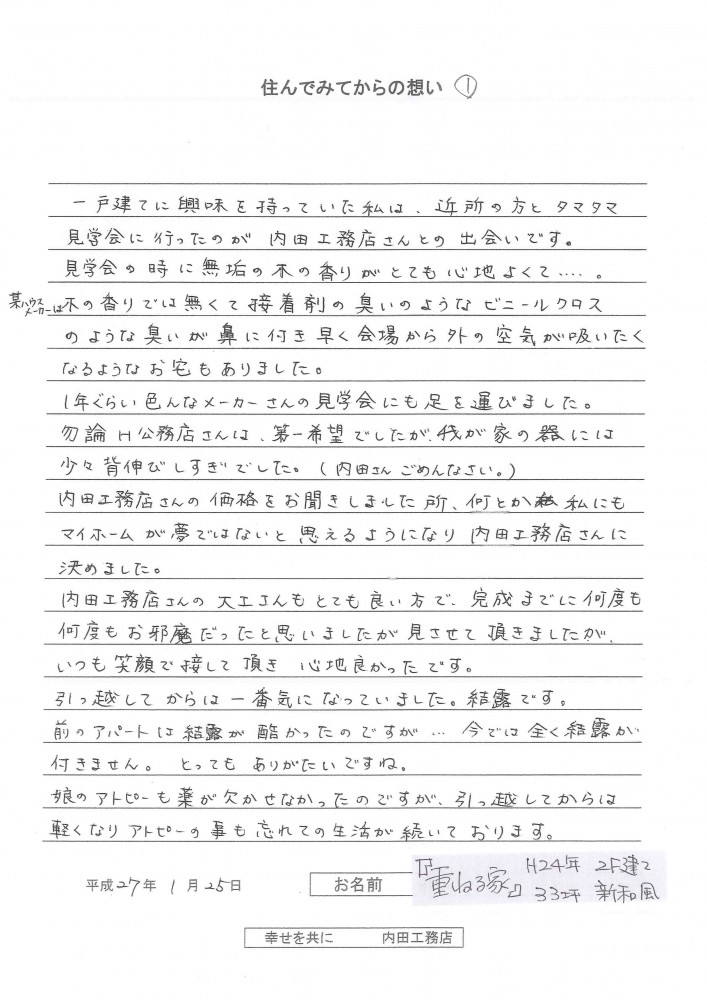 住んでみてからの想い ①
一戸建てに興味を持っていた私は、近所の方とタマタマ
見学会に行ったのが内田工務店さんとの出会いです。
見学会の時に無垢の木の香りがとても心地よくて‥‥。
某ハウスメーカーは木の香りでは無くて接着剤の臭いのようなビニールクロス
のような臭いが鼻に付き早く会場から外の空気が吸いたく
なるようなお宅もありました。
1年ぐらい色んなメーカーさんの見学会にも足を運びました。
勿論H公務店さんは、第一希望でしたが、我が家の器には
少々背伸びしすぎでした。(内田さんごめんなさい。)
内田工務店さんの価格をお聞きしました所、何とか私にも
マイホームが夢ではないと思えるようになり内田工務店さんに
決めました。
内田工務店さんの大工さんもとても良い方で、完成までに何度も
何度もお邪魔だったと思いましたが見させて頂きましたが、
いつも笑顔で接して頂き 心地良かったです。
引っ越してからは一番気になっていました。結露です。
前のアパートは結露が酷かったのですが…今では全く結露が
付きません。とってもありがたいですね。
娘のアトピーも薬が欠かせなかったのですが、引っ越してからは
軽くなりアトピーの事も忘れての生活が続いております。
平成27年1月25日 お名前 『重ねる家』 H24年 2F建て
33坪 新和風
幸せを共に 内田工務店